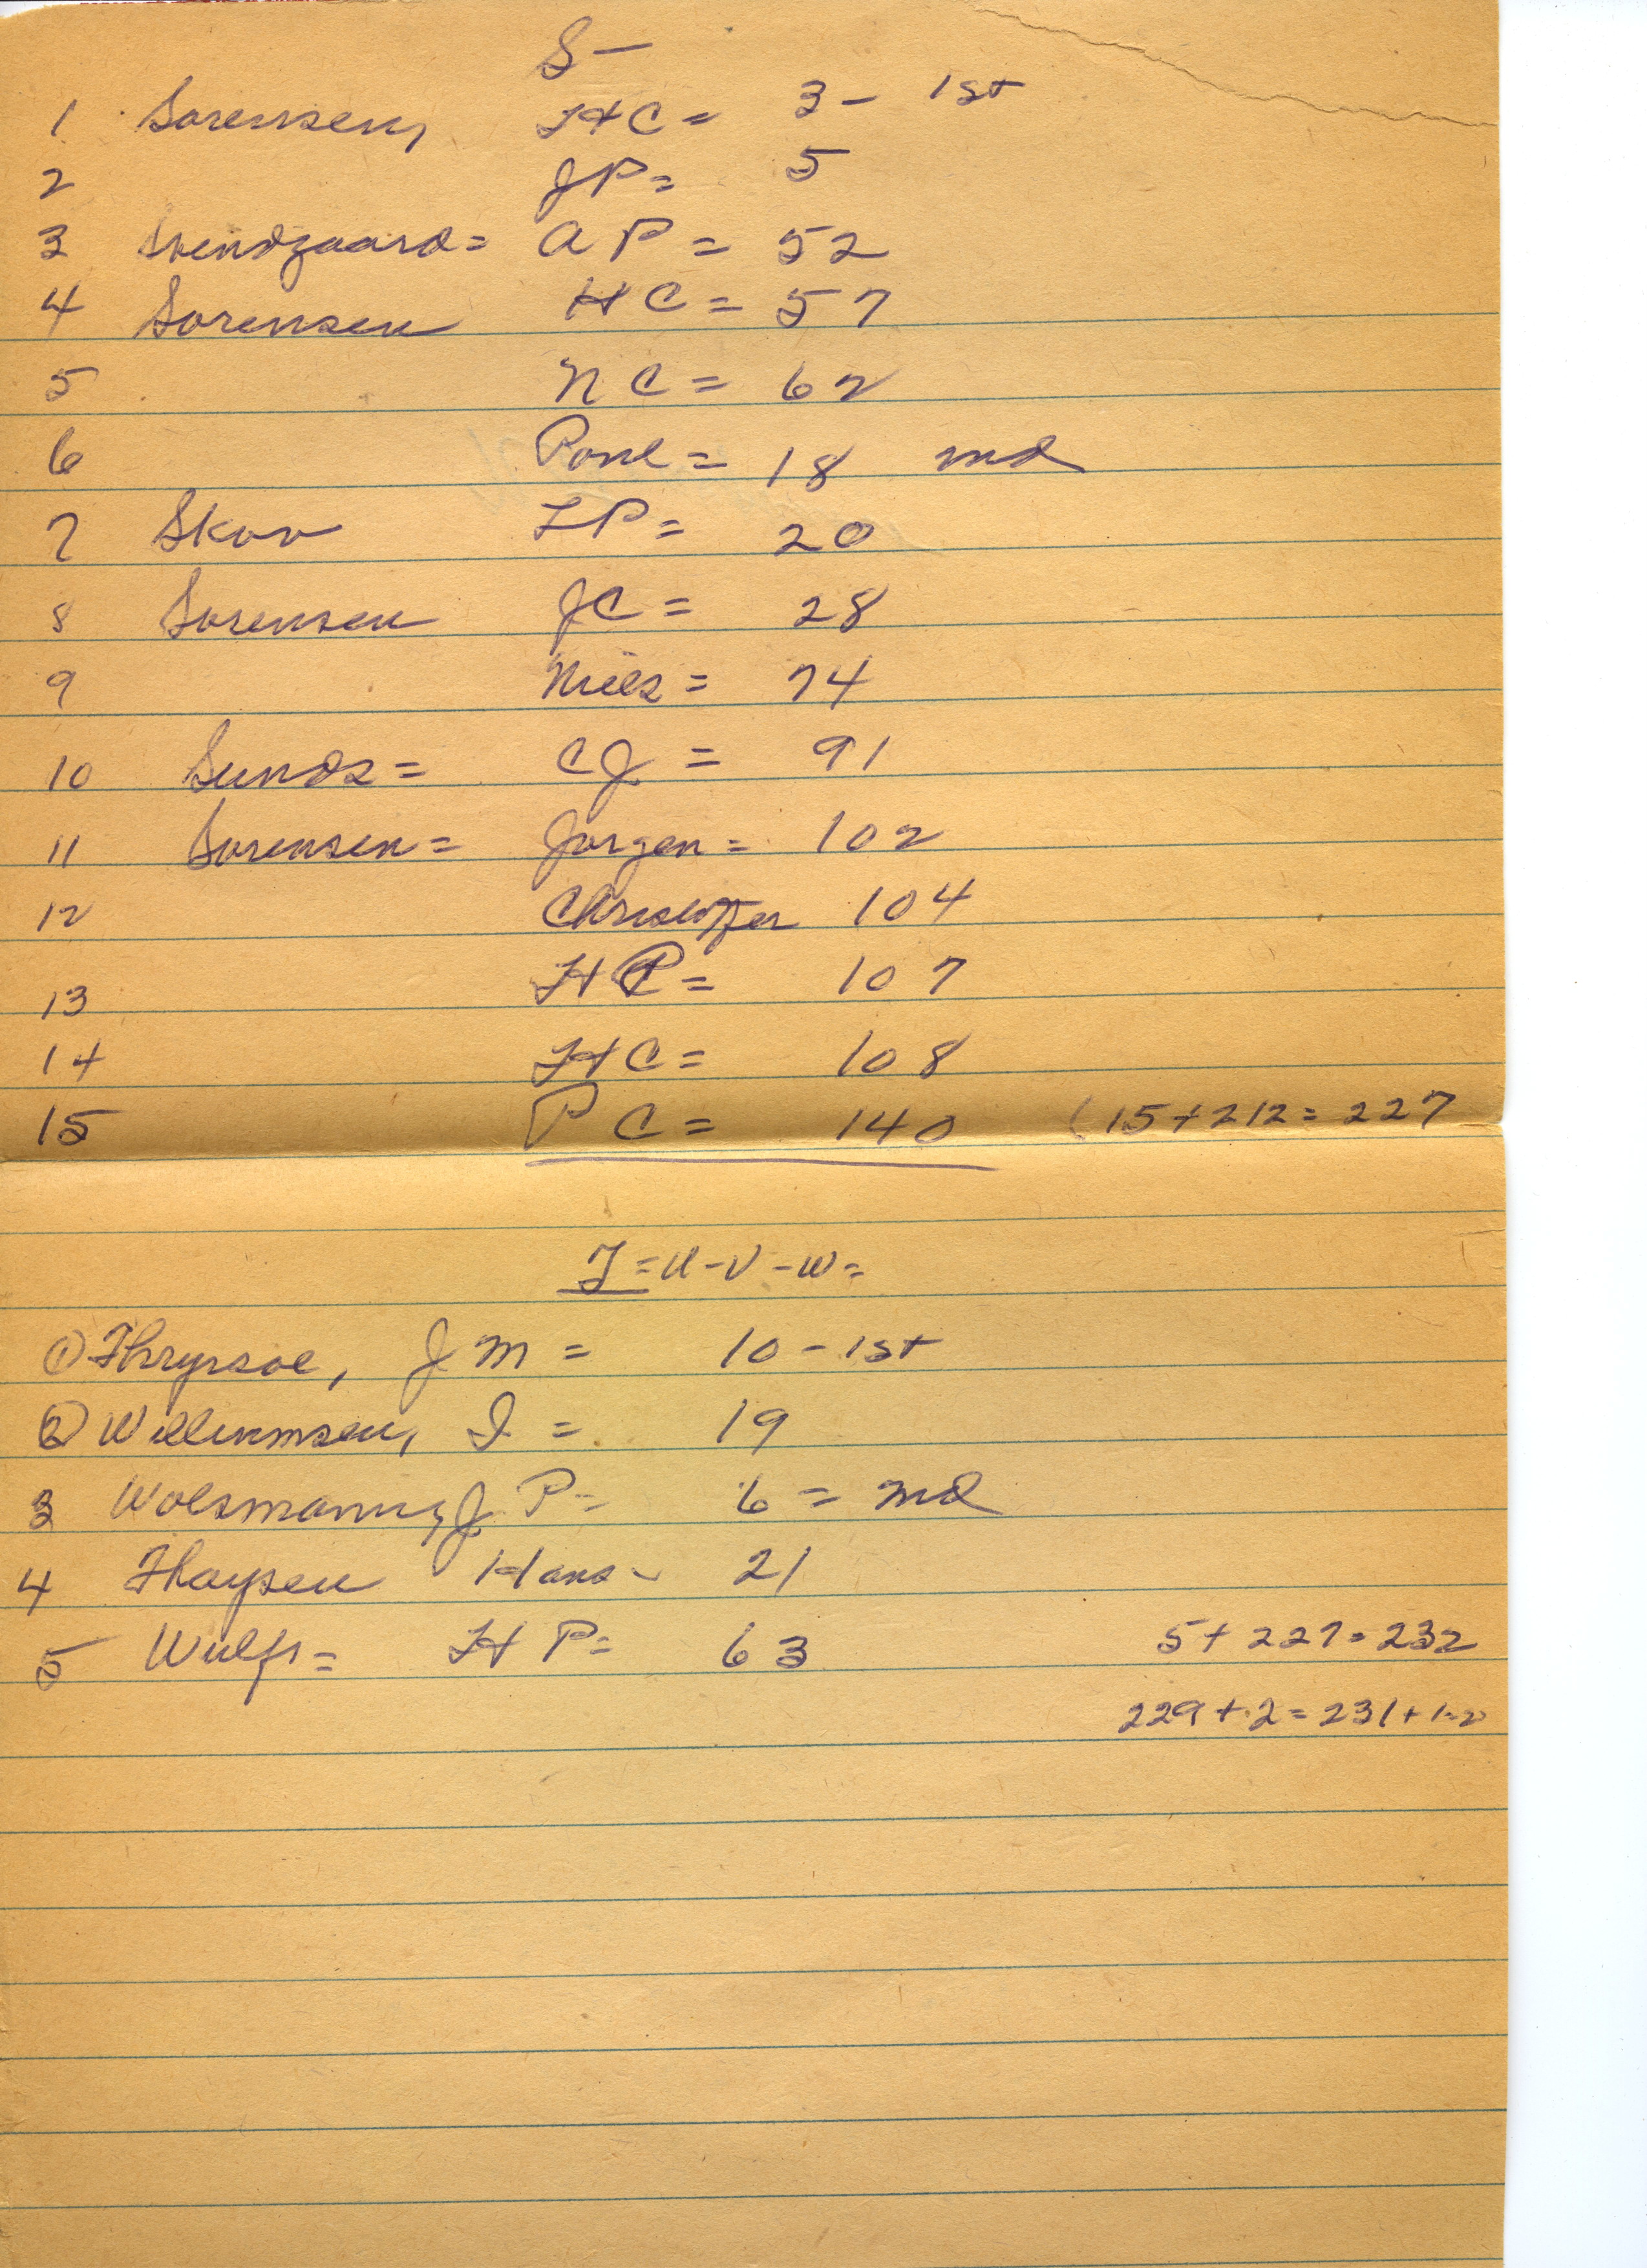 S —
1 Sorensen, HC = 3 - 1st
2 JP = 5
3 Svendgaard = AP = 52
4 Sorensen HC = 57
5 NC = 62
6 Poul = 18 md
7 Skov TP = 20
8 Sorensen JC = 28
9 Niels = 74
10 Sunds = CJ = 91
11 Sorensen = Jorgen = 102
12 104
13 HP = 107
14 HC = 108
15 PC = 140 (15+212=227
T = U - V - W =
1 Thrysoe, JM = 10 - 1st
2 Willumsen, I = 19
3 Wolsmann, J P = 6 = md
4 Thaysen Hans - 21
5 Wulff = HP = 63 5+227=232
229+2=231+1=2